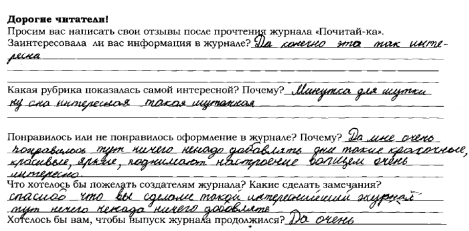 Дорогие читатели!
Просим вас написать свои отзывы после прочтения журнала «Почитай-ка».
Заинтересовала ли вас информация в журнале? Да конечно это так инте-
рсна
Какая рубрика показалась самой интересной? Почему? Минутка для шутки
ну она интересная такая шутачная
Понравилось или не понравилось оформление в журнале? Почему? Да мне очень
понравилось тут ничего ненадо добавлять они такие красочные,
красивые, яркие, поднимают настроение вопщем очень
интересно
Что хотелось бы пожелать создателям журнала? Какие сделать замечания?
спасибо что вы сделали такой интереснейший журнал
тут нечего ненада ничего добавляте
Хотелось бы вам, чтобы выпуск журнала продолжился? Да очень